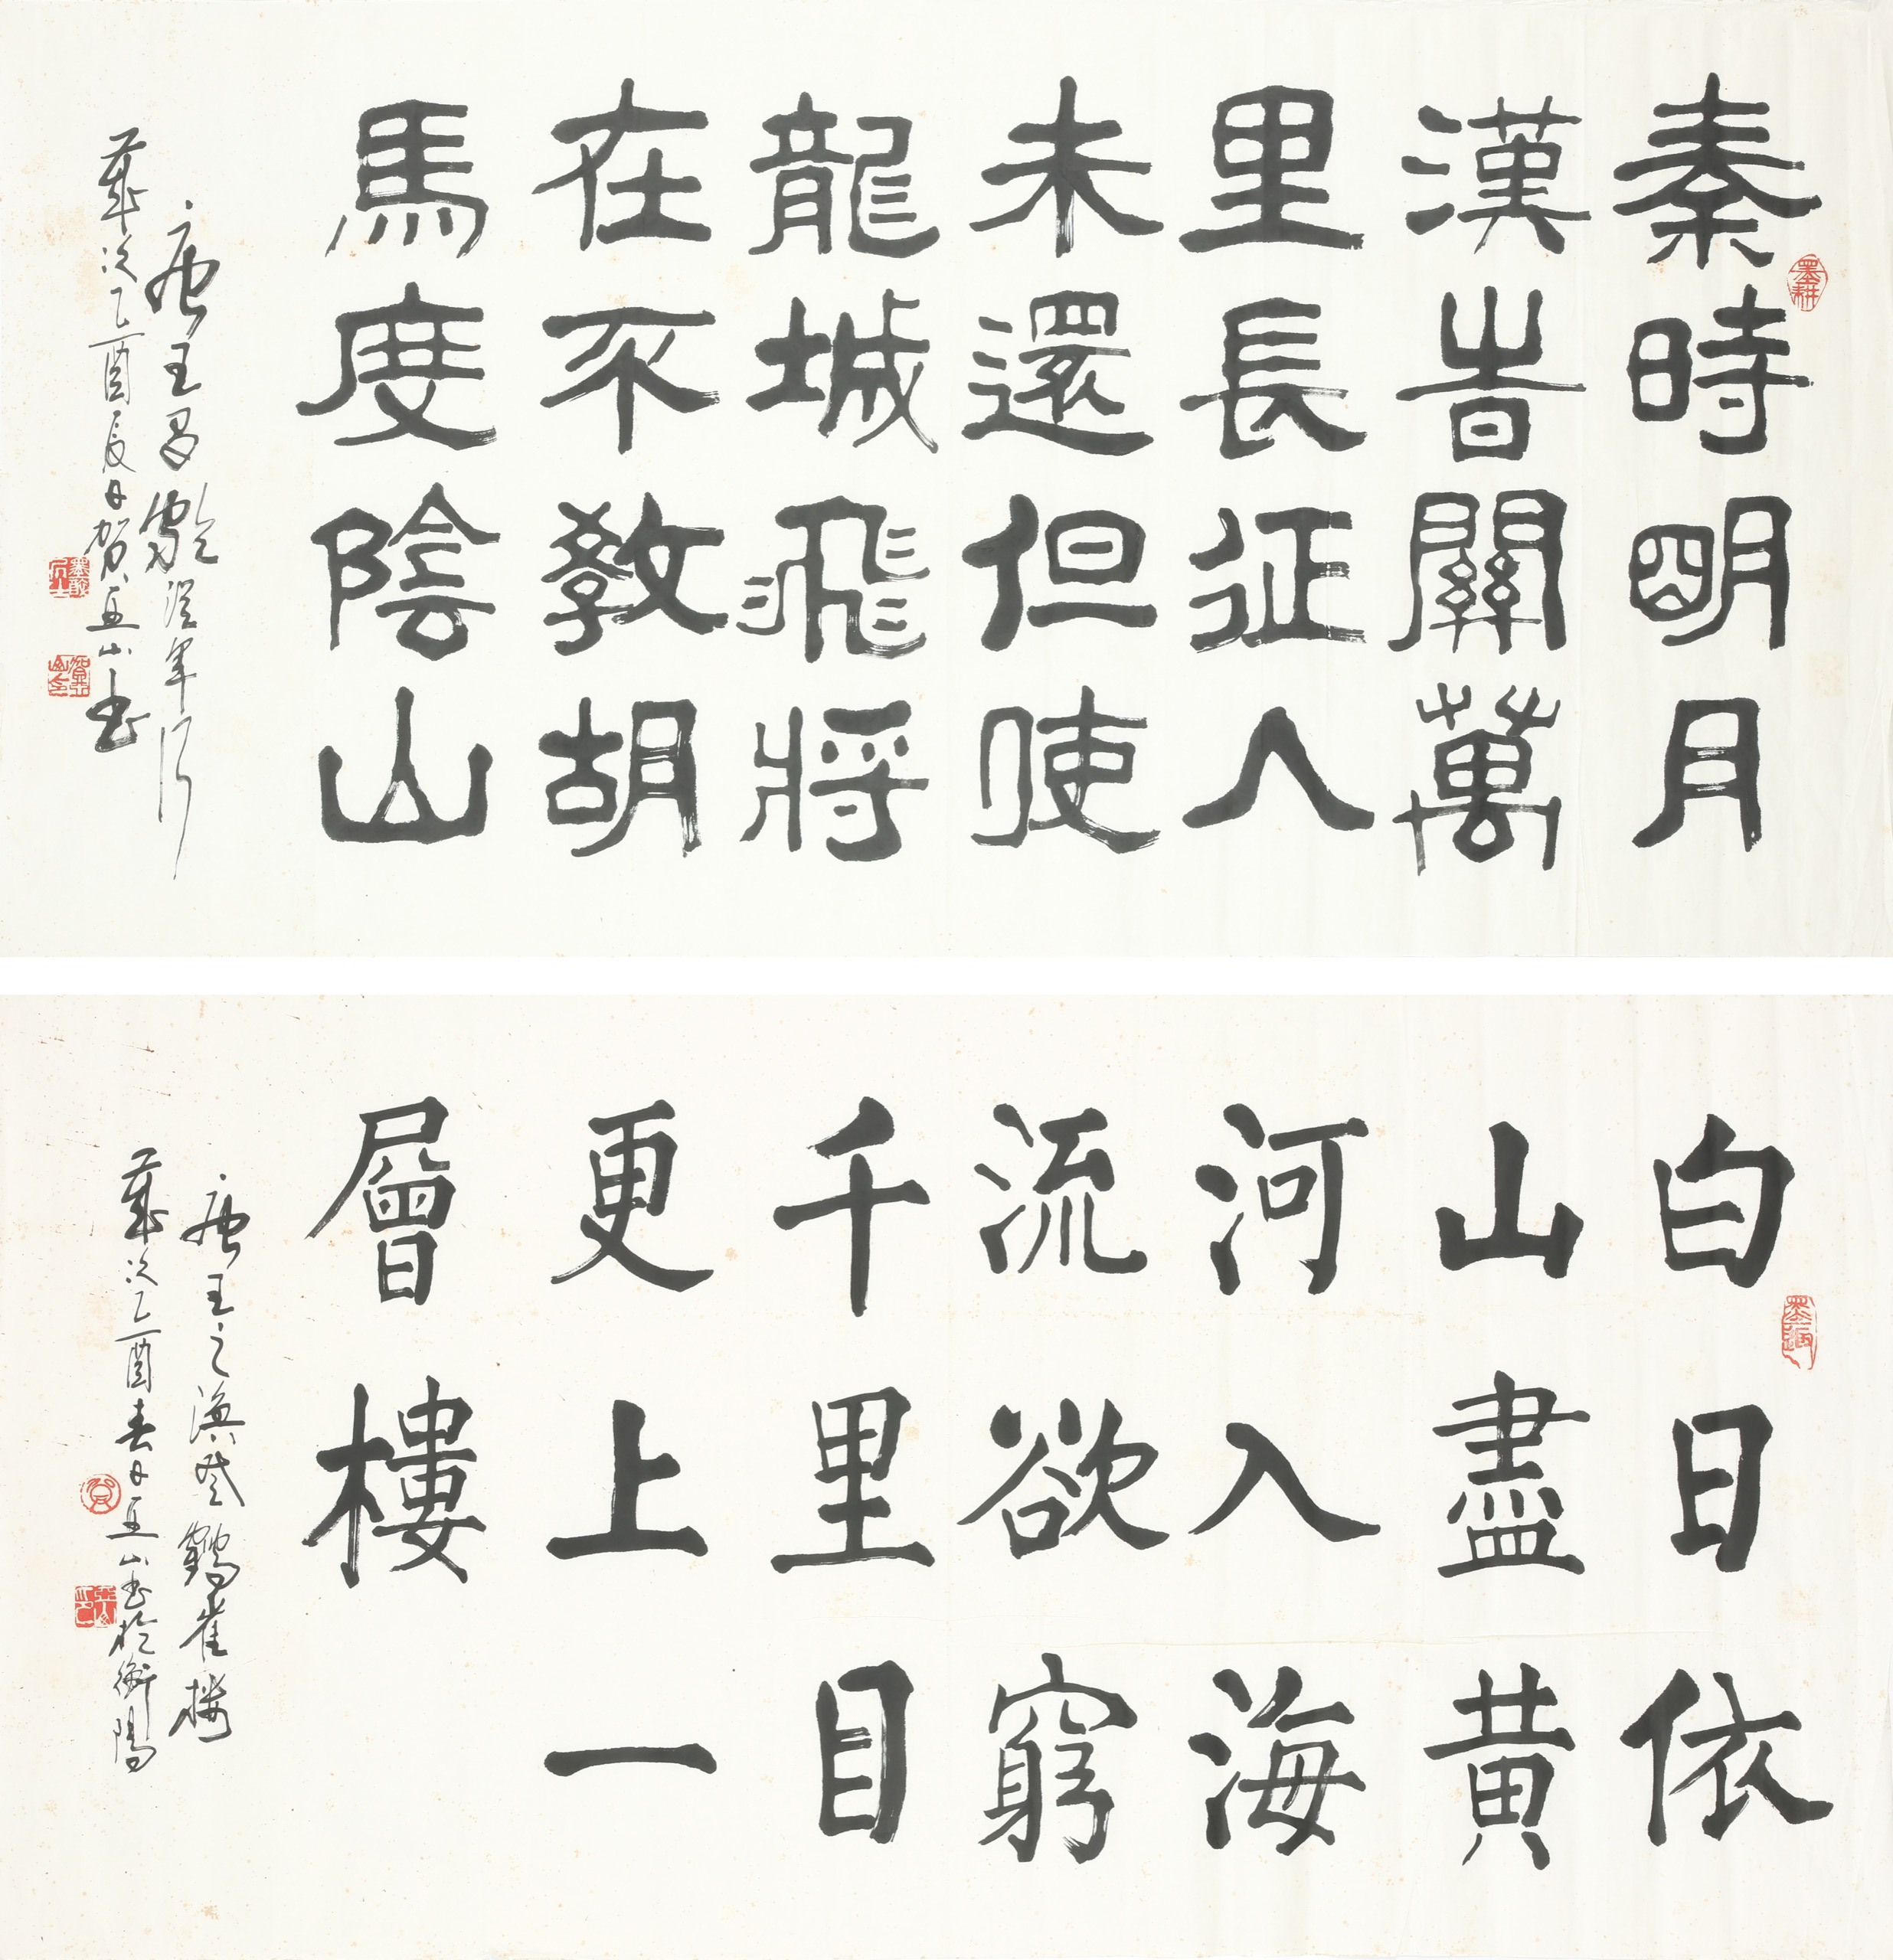 秦時明月
漢時關萬
里長征人
未還但使
龍城飛將
在不教胡
馬度陰山
唐王昌齡從軍行
歲次乙酉長月賀亞山書
墨耕
白日依
山盡黃
河入海
流欲窮
千里目
更上一
層樓
唐王之渙登鸛雀樓
歲次乙酉春月亞山書於衡陽
墨趣